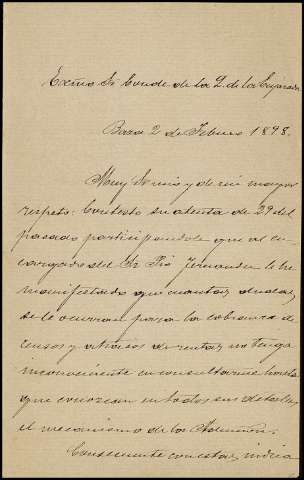 Exmo Sr Conde de la P. de la
Baza 2 de Febrero 1898.
Muy Sr mio y de mi mayor
respeto: Contesto su atenta de 29 del
pasado participandole que al en-
cargado del Sr Pio Fernandez le he
manifestado que cuantas dudas
se le ocurran para la cobranza de
censos y atrasos de rentas no tenga
inconveniente en consultarme hasta
que conozcan en todos sus detalles
el mecanismo de la
Consecuente con estas indica